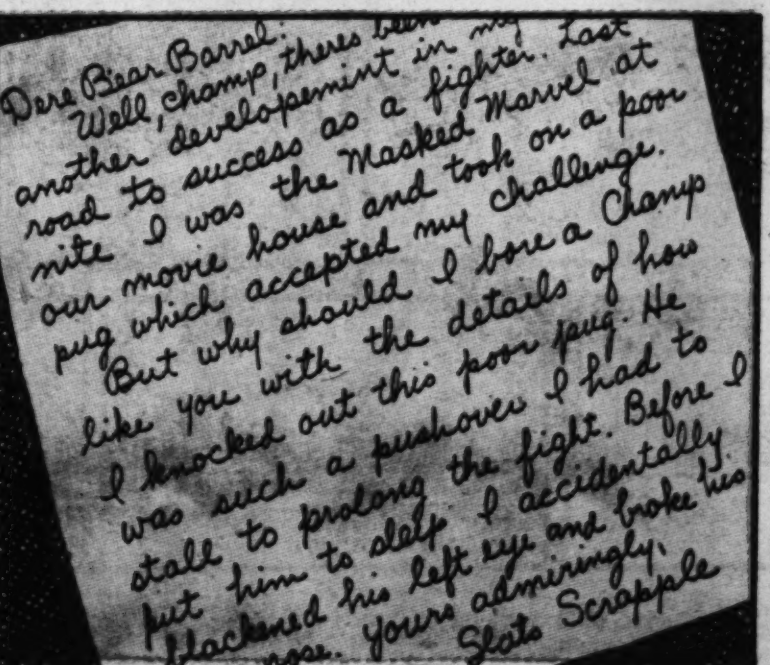 Dere Bear Barrel:
Well, champ, theres been
another developemint in my
road to success as a fighter. Last
nite I was the Masked Marvel at
our movie house and took on a poor
pug which accepted my challenge.
But why should I bore a Champ
like you with the details of how
I knocked out this poor pug. He
was such a pushover I had to
stall to prolong the fight. Before I
put him to sleep I accidentally
blackened his left eye and broke his
nose. Yours admiringly,
Slats Scrapple